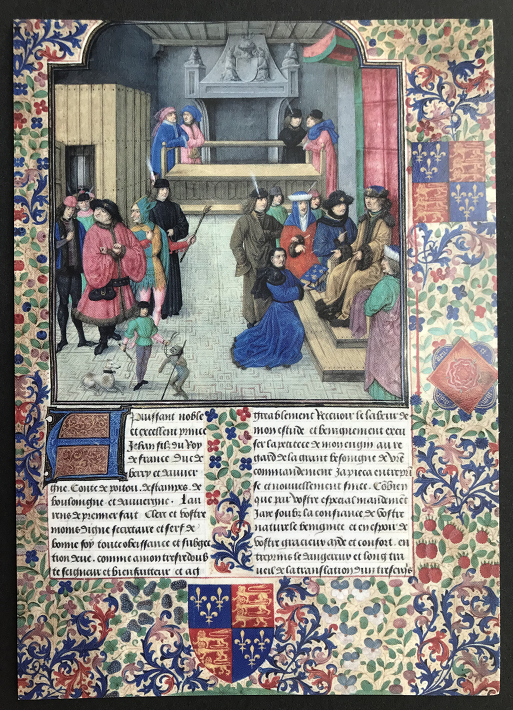 A Puissant noble
et excellent prince
Jehan filz du Roy
de france Duc de
berry et dauuer
gne. Conte de poitou. destampes. de
boulongne et dauuergne. Lau
rens de premier fait Clerc et vostre
moins digne secretaire et serf de
bonne foy toute obeissance et subgec
tion deue. comme a mon tresredoub
te seigneur et bienfaitteur. et ag
greablement Receuoir le labeur de
mon estude et benignement excu
ser la petitece de mon engin au re
gard de la grant besongne de vre
commandement Ja pieca entreprin
se et nouuellement finee. Combien
que par vostre especial mandement
Jaye soubz la confiance de vostre
naturele benignite et en espoir de
vostre gracieux aide et confort. en
trepris le dangereux et long tra
ueil de la translation dun